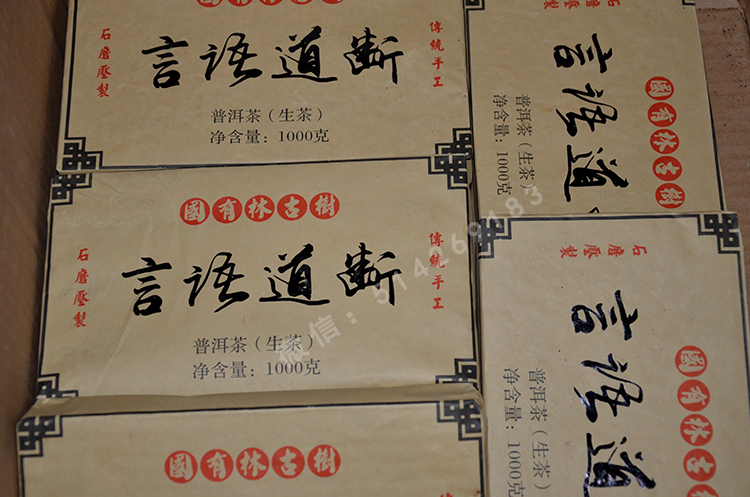 石磨壓製
言語道斷
傳統手工
普洱茶（生茶）
净含量：1000克
國有林古樹
言語道
普洱茶（生茶）
净含量：1000克
國有林古樹
石磨壓製
言語道斷
傳統手工
普洱茶（生茶）
净含量：1000克
國有林古樹
石磨壓製
言語道
普洱茶（生茶）
净含量：1000克
國有林古樹
國有林古樹